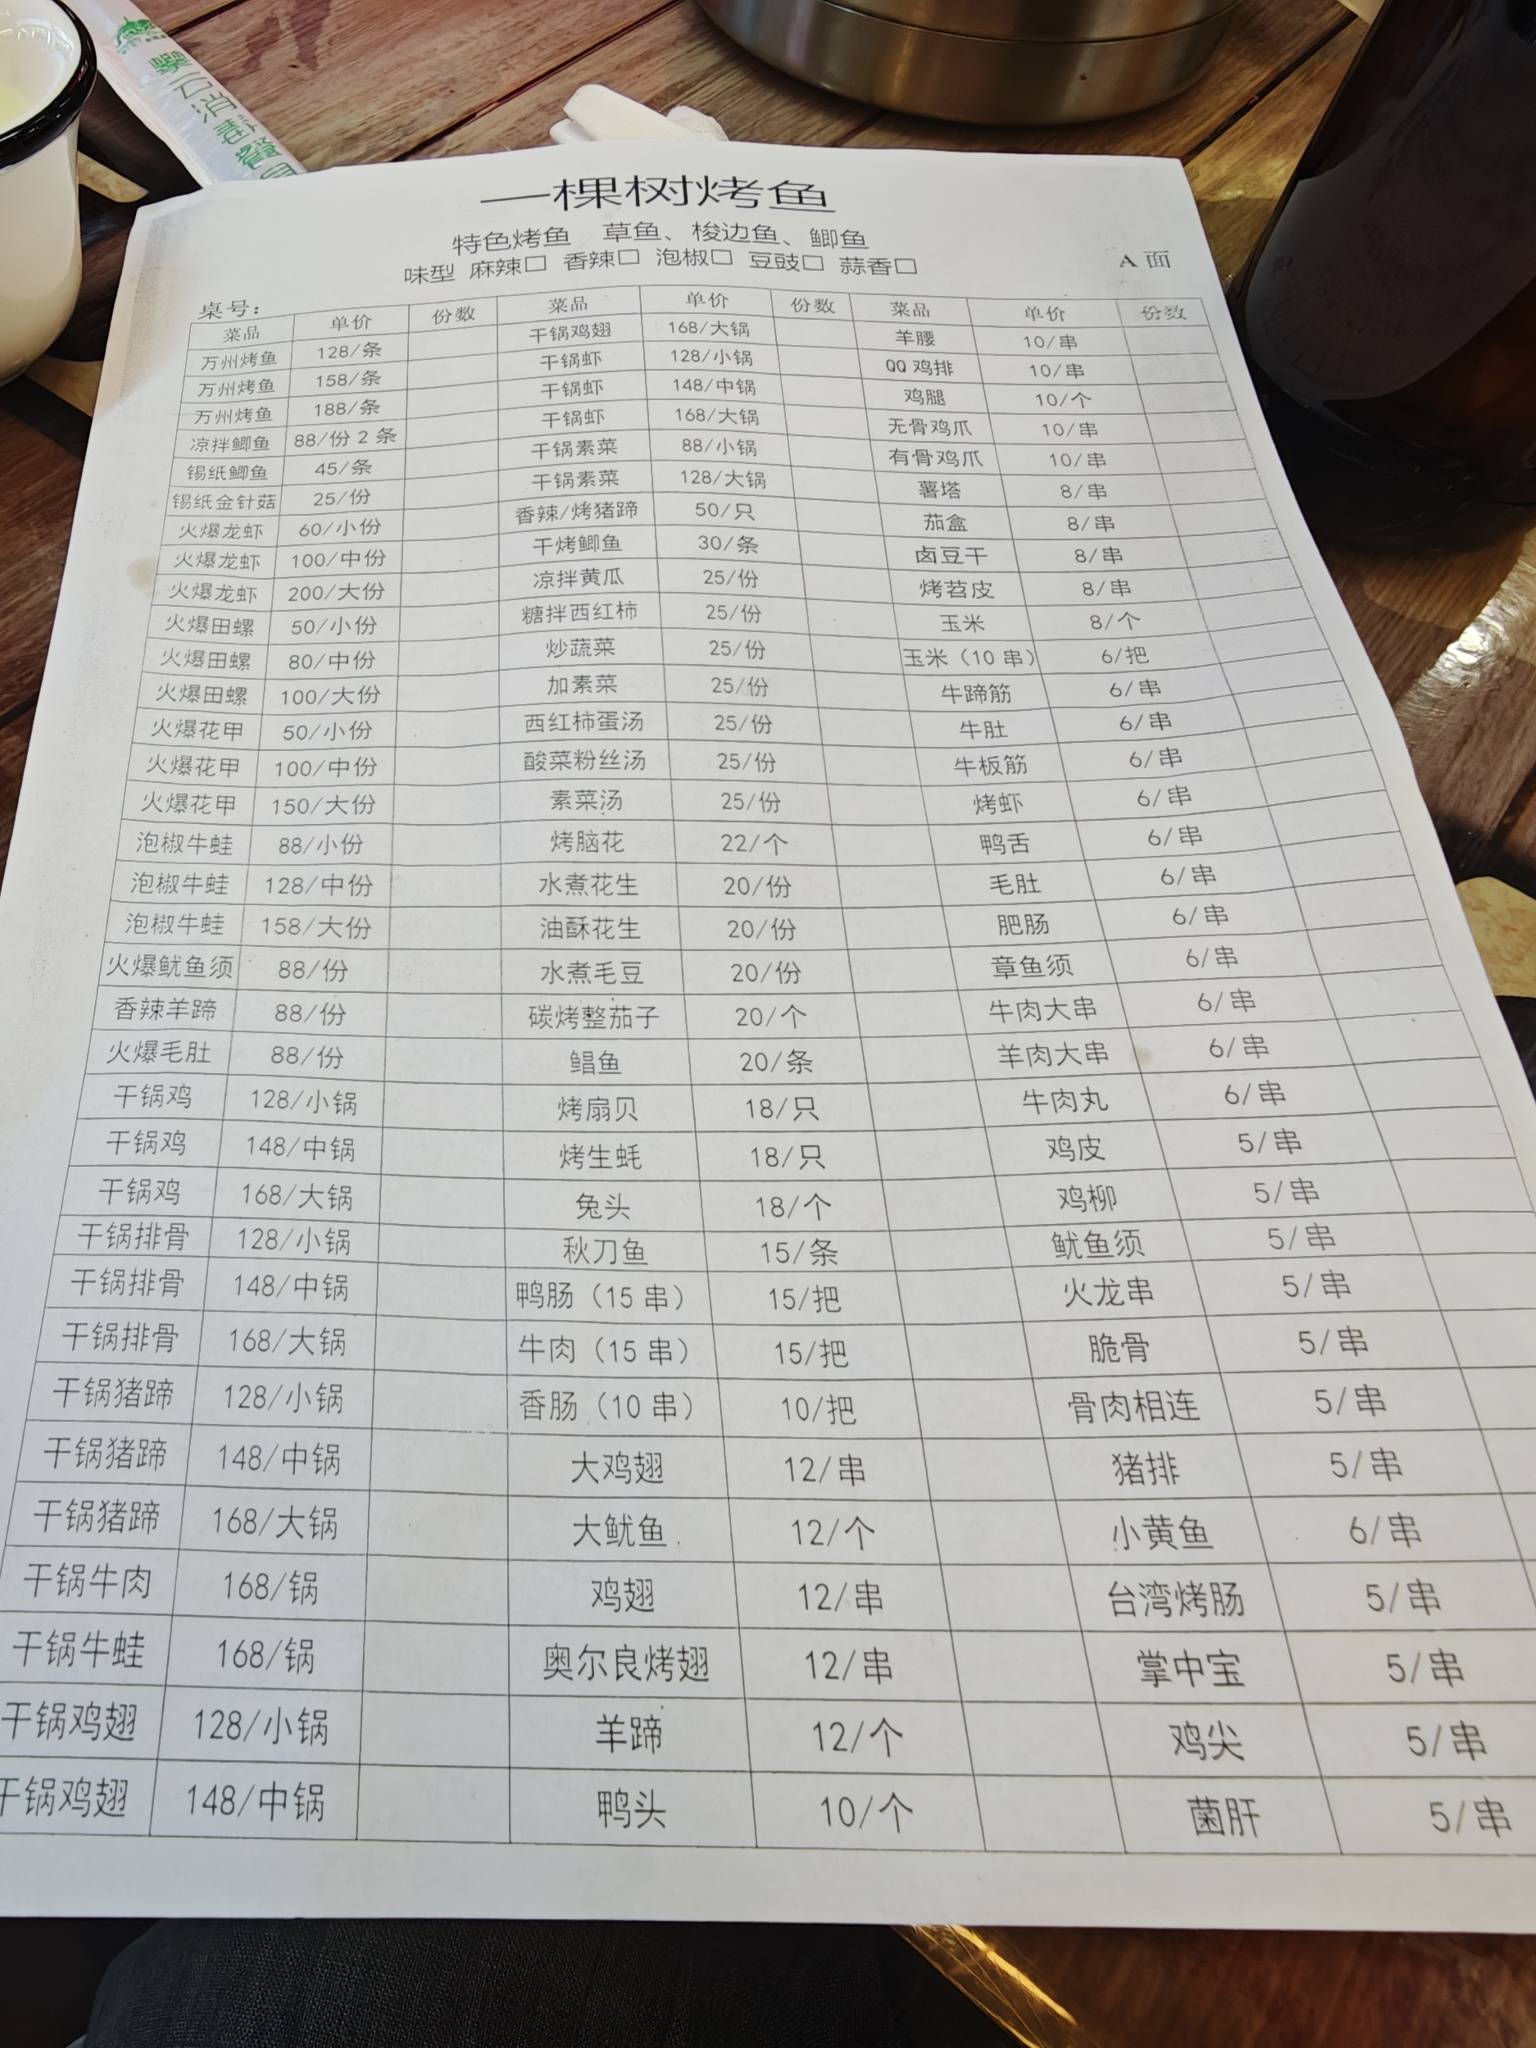 消毒餐
一棵树烤鱼
特色烤鱼 草鱼、梭边鱼、鲫鱼
味型 麻辣□ 香辣□ 泡椒□ 豆豉□ 蒜香□
A 面
桌号：
菜品 单价 份数 菜品 单价 份数 菜品 单价 份数
万州烤鱼 128/条 干锅鸡翅 168/大锅 羊腰 10/串
万州烤鱼 158/条 干锅虾 128/小锅 QQ 鸡排 10/串
万州烤鱼 188/条 干锅虾 148/中锅 鸡腿 10/个
凉拌鲫鱼 88/份 2 条 干锅虾 168/大锅 无骨鸡爪 10/串
锡纸鲫鱼 45/条 干锅素菜 88/小锅 有骨鸡爪 10/串
锡纸金针菇 25/份 干锅素菜 128/大锅 薯塔 8/串
火爆龙虾 60/小份 香辣/烤猪蹄 50/只 茄盒 8/串
火爆龙虾 100/中份 干烤鲫鱼 30/条 卤豆干 8/串
火爆龙虾 200/大份 凉拌黄瓜 25/份 烤苕皮 8/串
火爆田螺 50/小份 糖拌西红柿 25/份 玉米 8/个
火爆田螺 80/中份 炒蔬菜 25/份 玉米（10 串） 6/把
火爆田螺 100/大份 加素菜 25/份 牛蹄筋 6/串
火爆花甲 50/小份 西红柿蛋汤 25/份 牛肚 6/串
火爆花甲 100/中份 酸菜粉丝汤 25/份 牛板筋 6/串
火爆花甲 150/大份 素菜汤 25/份 烤虾 6/串
泡椒牛蛙 88/小份 烤脑花 22/个 鸭舌 6/串
泡椒牛蛙 128/中份 水煮花生 20/份 毛肚 6/串
泡椒牛蛙 158/大份 油酥花生 20/份 肥肠 6/串
火爆鱿鱼须 88/份 水煮毛豆 20/份 章鱼须 6/串
香辣羊蹄 88/份 碳烤整茄子 20/个 牛肉大串 6/串
火爆毛肚 88/份 鲳鱼 20/条 羊肉大串 6/串
干锅鸡 128/小锅 烤扇贝 18/只 牛肉丸 6/串
干锅鸡 148/中锅 烤生蚝 18/只 鸡皮 5/串
干锅鸡 168/大锅 兔头 18/个 鸡柳 5/串
干锅排骨 128/小锅 秋刀鱼 15/条 鱿鱼须 5/串
干锅排骨 148/中锅 鸭肠（15 串） 15/把 火龙串 5/串
干锅排骨 168/大锅 牛肉（15 串） 15/把 脆骨 5/串
干锅猪蹄 128/小锅 香肠（10 串） 10/把 骨肉相连 5/串
干锅猪蹄 148/中锅 大鸡翅 12/串 猪排 5/串
干锅猪蹄 168/大锅 大鱿鱼 12/个 小黄鱼 6/串
干锅牛肉 168/锅 鸡翅 12/串 台湾烤肠 5/串
干锅牛蛙 168/锅 奥尔良烤翅 12/串 掌中宝 5/串
干锅鸡翅 128/小锅 羊蹄 12/个 鸡尖 5/串
干锅鸡翅 148/中锅 鸭头 10/个 菌肝 5/串